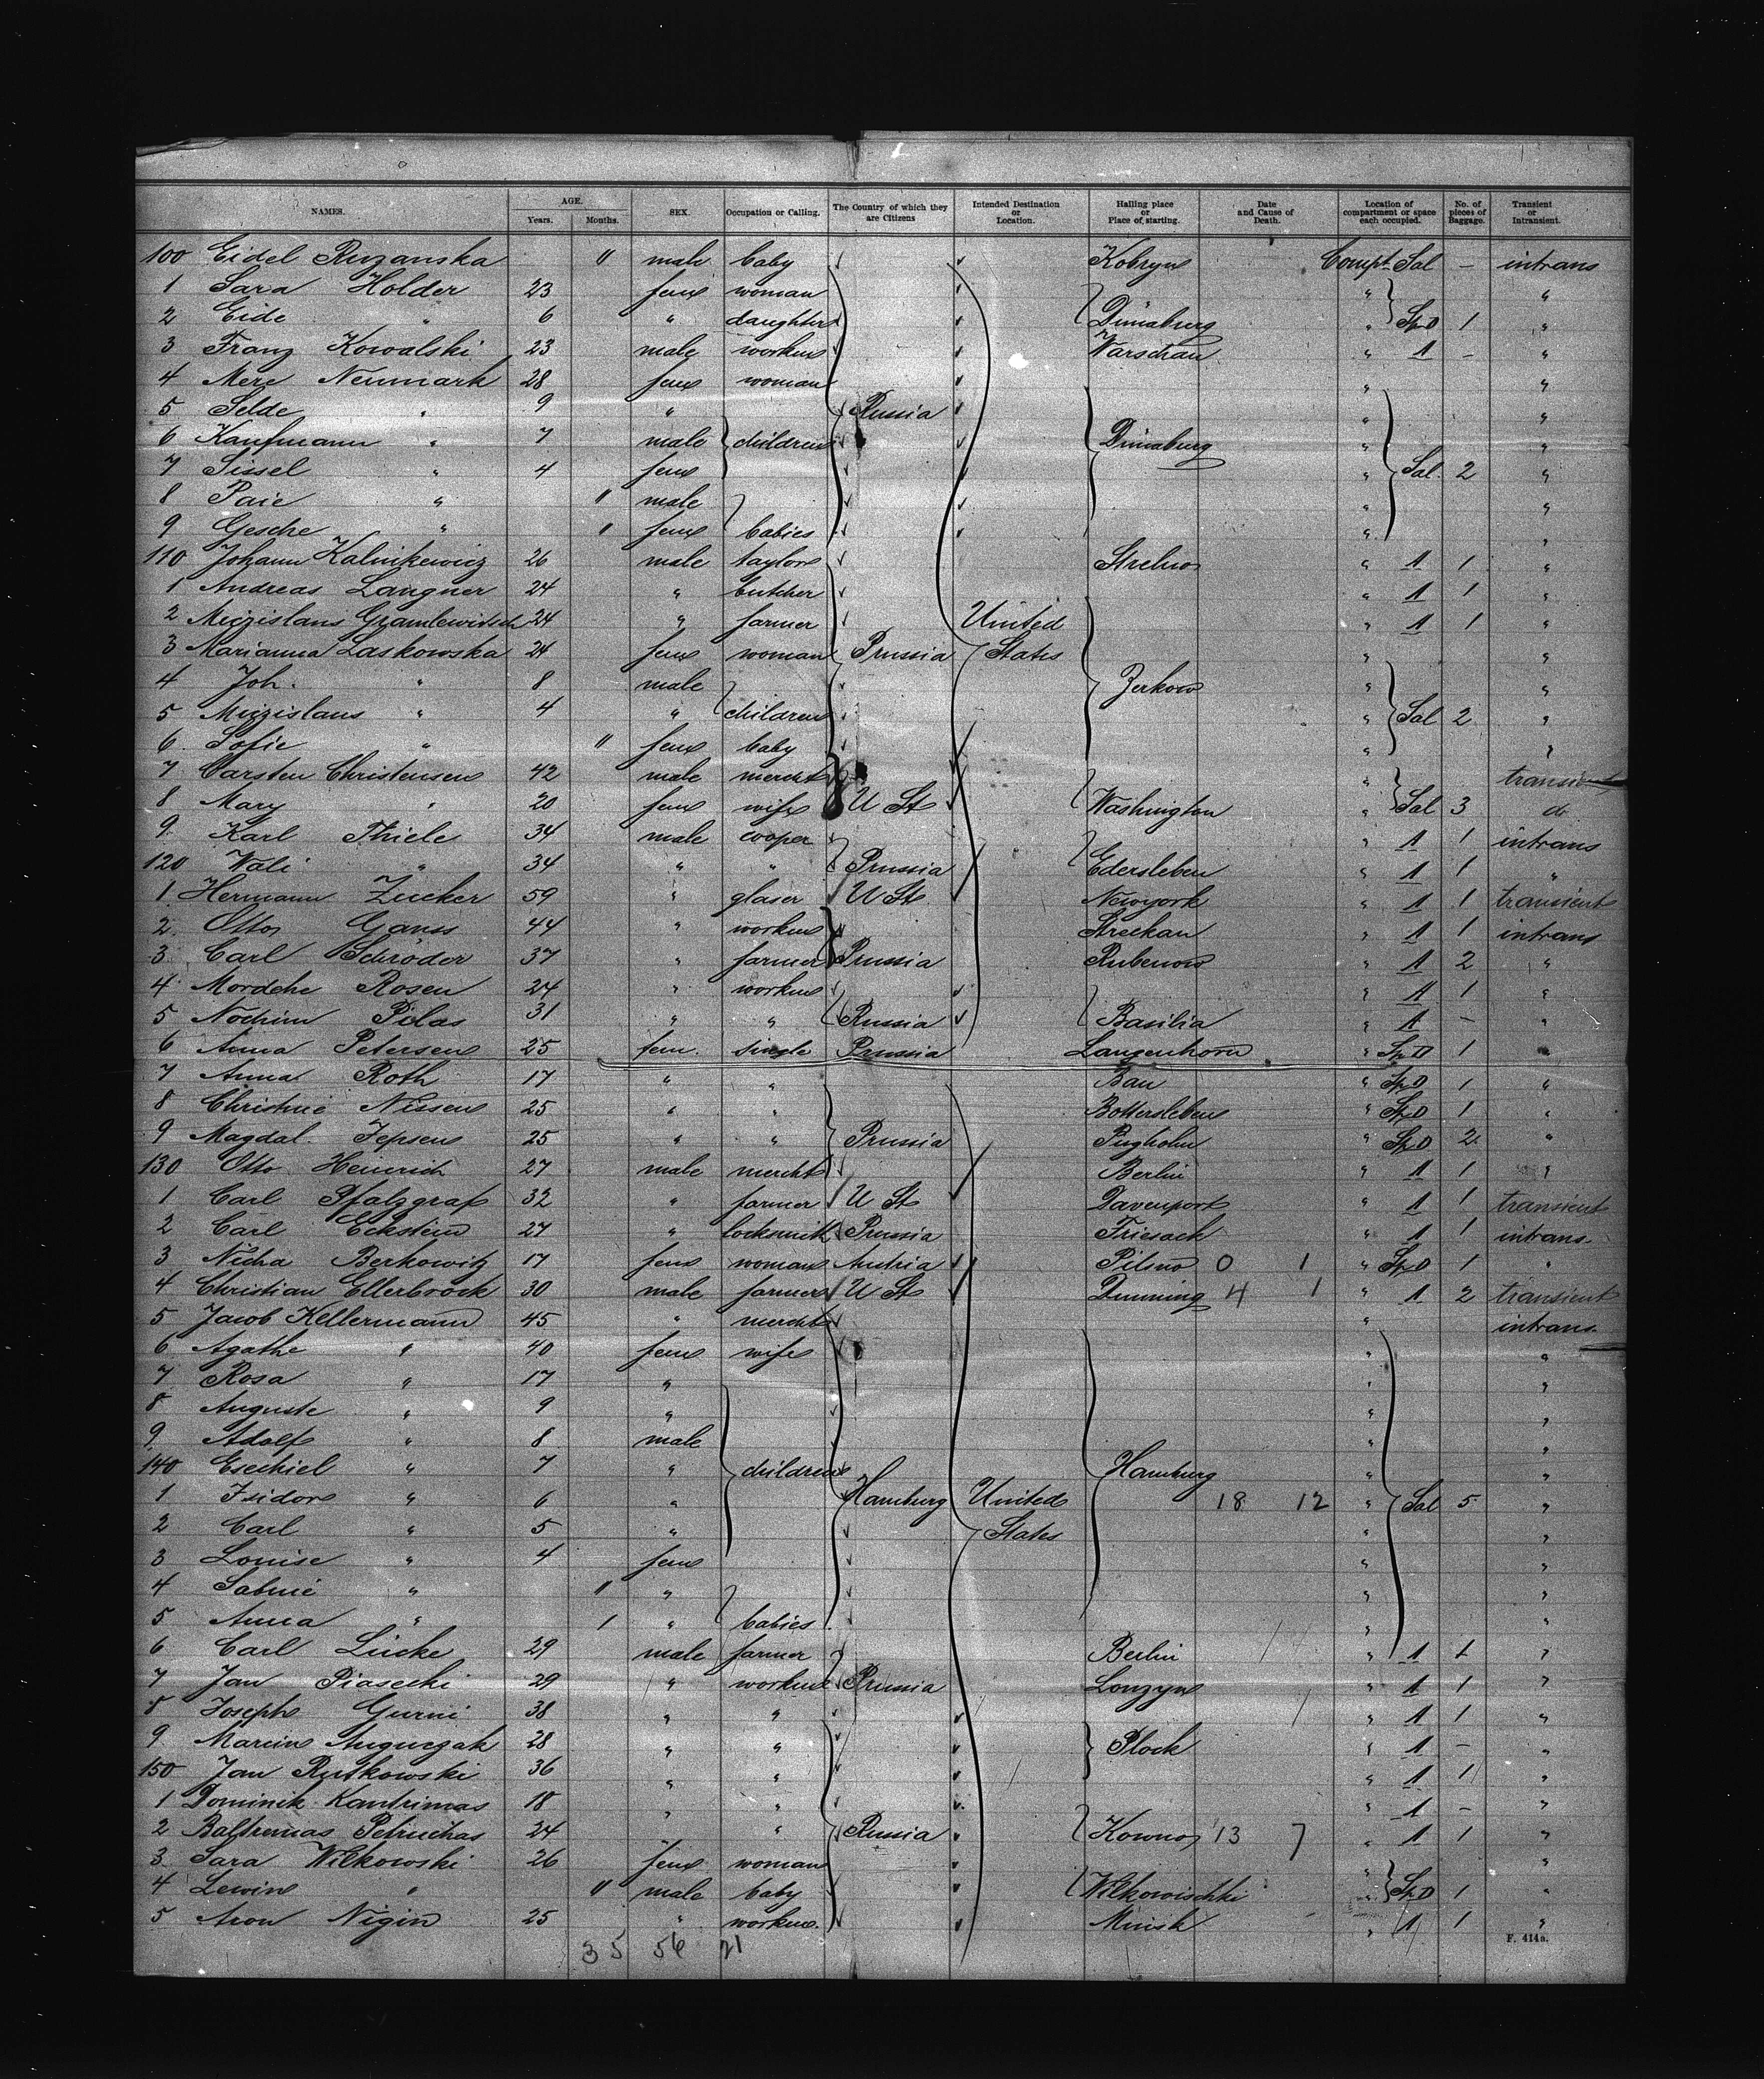 NAMES. AGE. Years. Months. SEX. Occupation or Calling. The Country of which they are Citizens Intended Destination or Location. Hailing place or Place of starting. Date and Cause of Death. Location of compartment or space each occupied. No. of pieces of Baggage. Transient or Intransient.
100 Eidel Ruzanska 11 male baby Kobryn Compt. Sal – intrans
1 Sara Holder 23 fem woman " "
2 Eide " 6 " daughter Dünaburg " Sp.D 1 "
3 Franz Kowalski 23 male workm Warschau " 1 – "
4 Mere Neumark 28 fem woman " "
5 Selde " 9 " Russia " "
6 Kaufmann " 7 male children Dünaburg " "
7 Sissel " 4 fem " Sal. 2 "
8 Paie " 11 male " "
9 Gesche " " fem babies " "
110 Johann Kalinkewicz 26 male taylor Strelno " 1 1 "
1 Andreas Langner 24 " butcher " 1 1 "
2 Miczislaus Gramlewitsch 24 " farmer United " 1 1 "
3 Marianna Laskowska 24 fem woman Prussia States " "
4 Joh. " 8 male Zerkow " "
5 Miczislaus " 4 " children " Sal 2 "
6 Sofie " 11 fem baby " "
7 Carsten Christensen 42 male mercht " transient
8 Mary " 20 fem wife U St Washington " Sal 3 do
9 Karl Thiele 34 male cooper " 1 1 intrans
120 Wali " 34 " " Prussia Edersleben " 1 1 "
1 Hermann Zucker 59 " glaser U St. Newyork " 1 1 transient
2 Otto Ganss 44 " workm Streckau " 1 1 intrans
3 Carl Schröder 37 " farmer Prussia Rubenow " 1 2 "
4 Mordche Rosen 24 " workm " 1 1 "
5 Nochim Pilas 31 " " Russia Basilia " 1 – "
6 Anna Petersen 25 fem. single Prussia Langenhorn " Sp.D 1 "
7 Anna Roth 17 " " Bau " Sp.D 1 "
8 Christine Nissen 25 " " Bottersleben " Sp.D 1 "
9 Magdal. Jepsen 25 " " Prussia Pugholm " Sp.D 2 "
130 Otto Heinrich 27 male mercht Berlin " 1 1 "
1 Carl Pfalzgraf 32 " farmer U St Davenport " 1 1 transient
2 Carl Eckstein 27 " locksmith Prussia Friesack " 1 1 intrans.
3 Nicha Berkowitz 17 fem woman Austria Pilsno 0 1 " Sp.D 1 "
4 Christian Ellerbrock 30 male farmer U St Dunning 4 1 " 1 2 transient
5 Jacob Kellermann 45 " mercht " intrans.
6 Agathe " 40 fem wife " "
7 Rosa " 17 " " "
8 Auguste " 9 " " "
9 Adolf " 8 male " "
140 Esechiel " 7 " children Hamburg " "
1 Isidor " 6 " Hamburg United 18 12 " Sal 5 "
2 Carl " 5 " States " "
3 Louise " 4 fem " "
4 Sabine " 11 " " "
5 Anna " 1 " babies " "
6 Carl Lücke 29 male farmer Berlin " 1 1 "
7 Jan Piasecki 29 " workm Prussia Lonzyn " 1 1 "
8 Joseph Gurni 38 " " " 1 1 "
9 Marcin Augurzak 28 " " Plock " 1 – "
150 Jan Rutkowski 36 " " " 1 1 "
1 Dominik Kantrimas 18 " " " 1 – "
2 Baltremas Petruchas 24 " Russia Kowno 13 7 " 1 1 "
3 Sara Wilkowski 26 fem woman " "
4 Lewin " 11 male baby Wilkowischki " Sp.D 1 "
5 Aron Nigin 25 " workm. Minsk " 1 1 "
35 56 21
F. 414a.